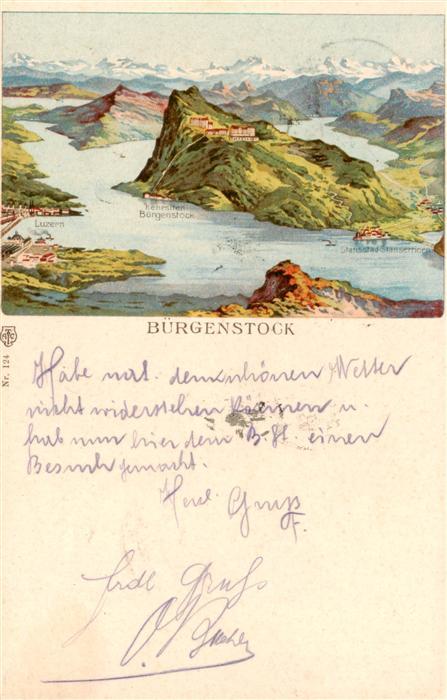 Luzern
Kehrsiten
Bürgenstock
Stansstad-Stanserhorn
BÜRGENSTOCK
Nr. 124
Habe nat. dem schönen Wetter
nicht widerstehen können u.
hab nun hier dem B.St. einen
Besuch gemacht.
Herzl. Gruß
F.
frdl Gruß
O.